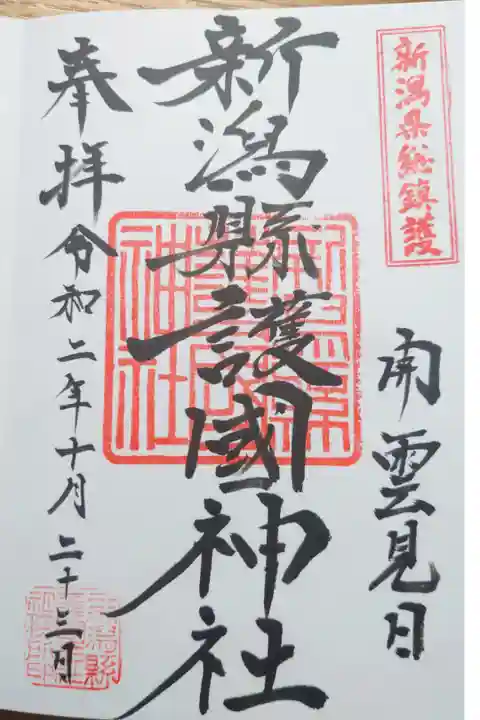 新潟県総鎮護
開雲見日
新潟縣護國神社
奉拝 令和二年十月二十三日